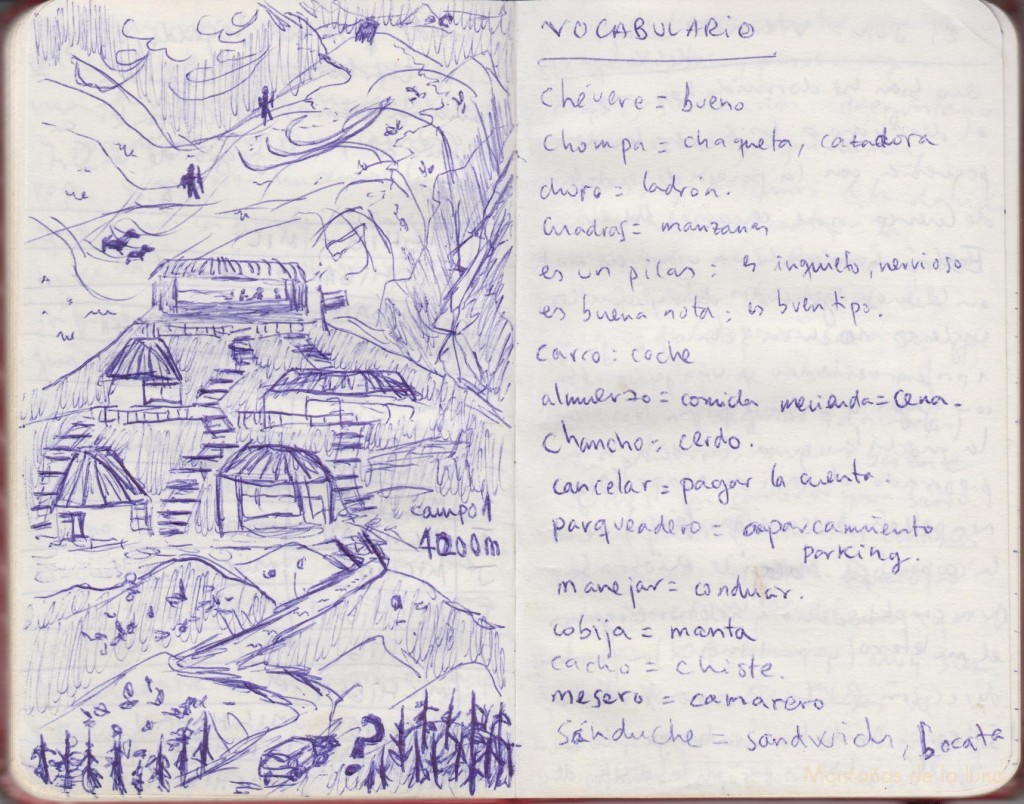 campo 1
4200m
VOCABULARIO
chévere = bueno
chompa = chaqueta, cazadora
choro = ladrón.
cuadras = manzanas
es un pilas : es inquieto, nervioso
es buena nota : es buen tipo.
carro : coche
almuerzo = comida merienda = cena.
Chancho = cerdo.
cancelar = pagar la cuenta.
parqueadero = aparcamiento
parking.
manejar = conducir.
cobija = manta
cacho = chiste.
mesero = camarero
Sánduche = sandwich, bocata
Montañas de la Luna